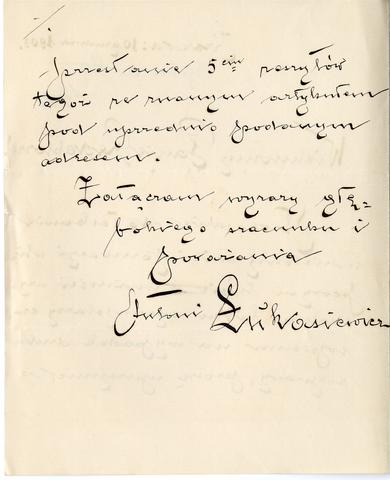 przesłanie 5ciu zeszytów
tegoż ze znanym artykułem
pod uprzednio podanym
adresem.
Załączam wyrazy głę-
bokiego szacunku i
poważania
Antoni Łukasiewicz